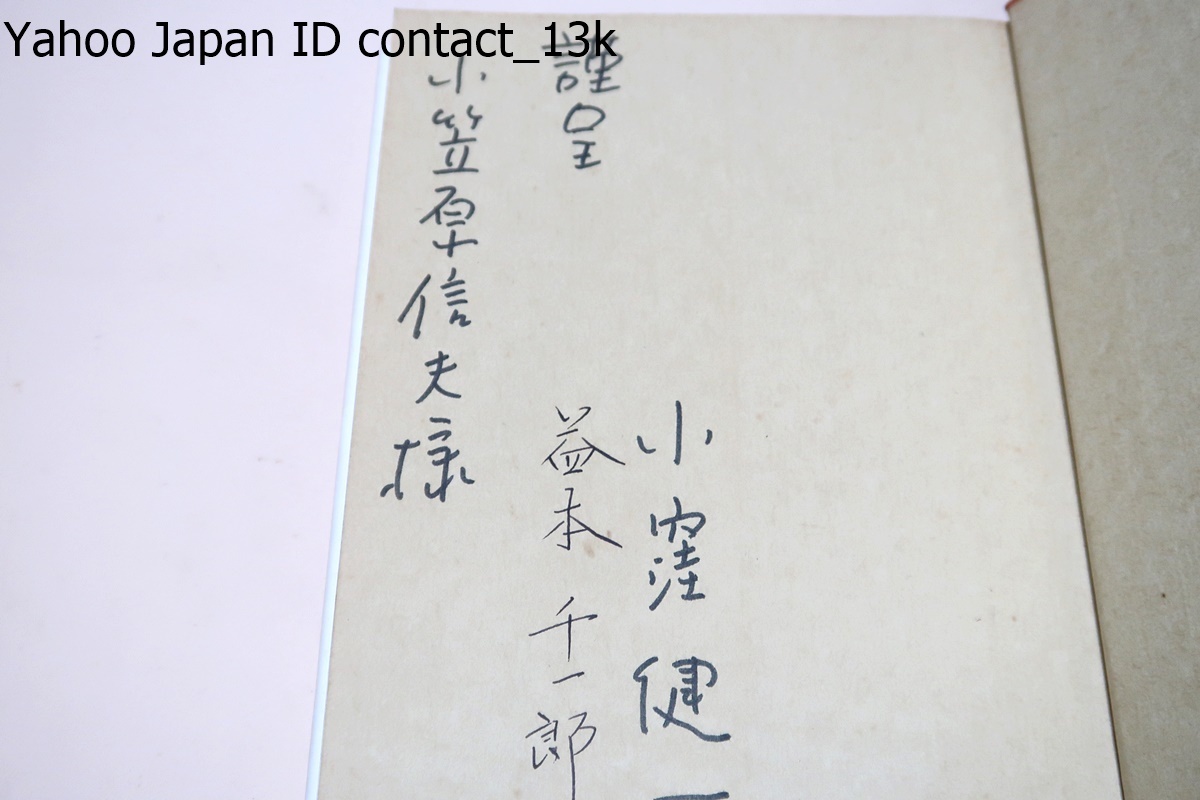 Yahoo Japan ID contact_13k
小窪健一
謹呈
益本千一郎
小笠原信夫様